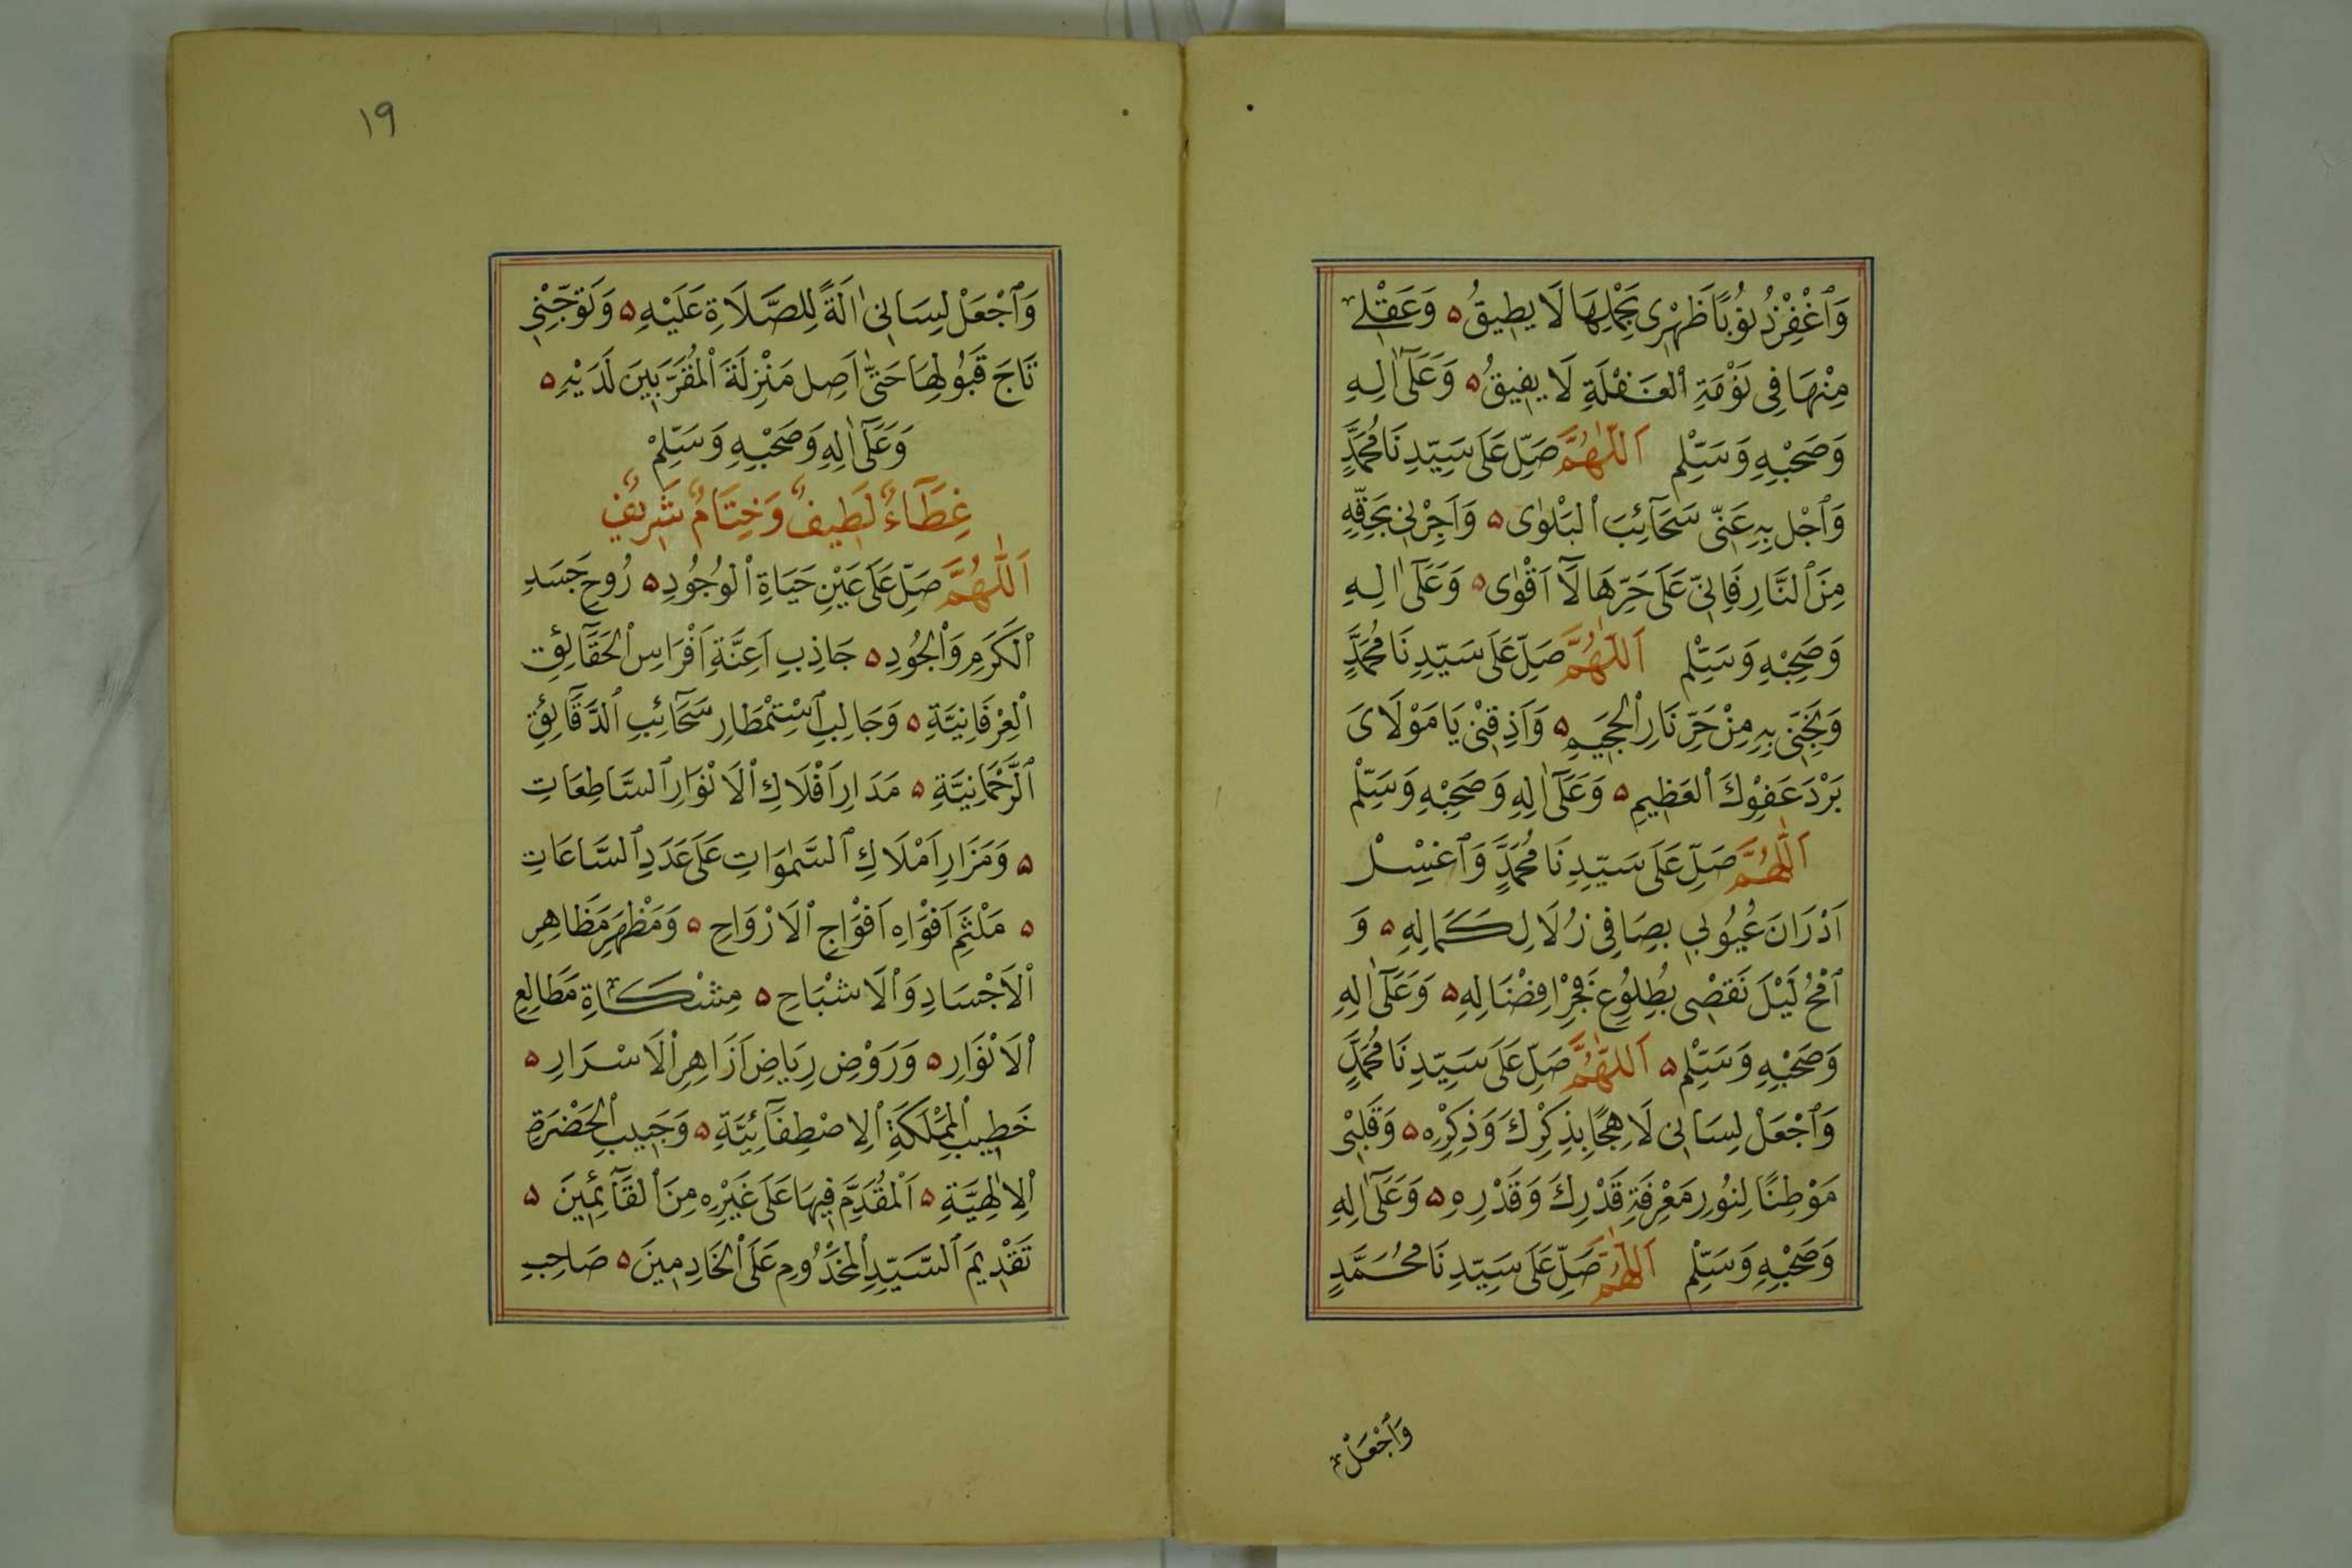 وَٱغْفِرْ ذُنُوْبًا ظَهْرِى بِحَمْلِهَا لَا يطِيقُ ۵ وَعَقْلِى
مِنْهَا فِى نَوْمَةِ ٱلْغَفْلَةِ لَا يفِيقُ ۵ وَعَلَىٓ اٰلِهِ
وَصَحْبِهِ وَسَلِّمْ اَللّٰهُمَّ صَلِّ عَلَى سَيِّدِنَا مُحَمَّدٍ
وَٱجْلِ بِهِ عَنِّى سَحَآئِبَ ٱلْبَلْوٰى ۵ وَاَجِرْنِى بِحَقِّهِ
مِنَ ٱلنَّارِ فَاِنِّى عَلَى حَرِّهَا لَآ اَقْوٰى ۵ وَعَلَىٓ اٰلِهِ
وَصَحْبِهِ وَسَلِّمْ اَللّٰهُمَّ صَلِّ عَلَى سَيِّدِنَا مُحَمَّدٍ
وَنَجِّنِى بِهِ مِنْ حَرِّ نَارِ ٱلْجَحِيمِ ۵ وَاَذِقْنِى يَا مَوْلَاىَ
بَرْدَ عَفْوِكَ ٱلْعَظِيمِ ۵ وَعَلَىٓ اٰلِهِ وَصَحْبِهِ وَسَلِّمْ
اَللّٰهُمَّ صَلِّ عَلَى سَيِّدِنَا مُحَمَّدٍ وَٱغْسِلْ
اَدْرَانَ عُيُوبِى بِصَافِى زُلَالِ كَمَالِهِ ۵ وَ
ٱمْحُ لَيْلَ نَقْصِى بِطُلُوعِ فَجْرِ اِفْضَالِهِ ۵ وَعَلَىٓ اٰلِهِ
وَصَحْبِهِ وَسَلِّمْ ۵ اَللّٰهُمَّ صَلِّ عَلَى سَيِّدِنَا مُحَمَّدٍ
وَٱجْعَلْ لِسَانِى لَاهِجًا بِذِكْرِكَ وَذِكْرِهِ ۵ وَقَلْبِى
مَوْطِنًا لِنُورِ مَعْرِفَةِ قَدْرِكَ وَقَدْرِهِ ۵ وَعَلَىٓ اٰلِهِ
وَصَحْبِهِ وَسَلِّمْ اَللّٰهُمَّ صَلِّ عَلَى سَيِّدِنَا مُحَمَّدٍ
وَٱجْعَلْ
١٩
وَٱجْعَلْ لِسَانِى اٰلَةً لِلصَّلَاةِ عَلَيْهِ ۵ وَتَوِّجْنِى
تَاجَ قَبُولِهَا حَتّٰى اَصِلَ مَنْزِلَةَ ٱلْمُقَرَّبِينَ لَدَيْهِ ۵
وَعَلَىٓ اٰلِهِ وَصَحْبِهِ وَسَلِّمْ
غِطَآءٌ لَطِيفٌ وَخِتَامٌ شَرِيفٌ
اَللّٰهُمَّ صَلِّ عَلَى عَيْنِ حَيَاةِ ٱلْوُجُودِ ۵ رُوحِ جَسَدِ
ٱلْكَرَمِ وَٱلْجُودِ ۵ جَاذِبِ اَعِنَّةِ اَفْرَاسِ ٱلْحَقَآئِقِ
ٱلْعِرْفَانِيَّةِ ۵ وَجَالِبِ ٱسْتِمْطَارِ سَحَآئِبِ ٱلدَّقَآئِقِ
ٱلرَّحْمَانِيَّةِ ۵ مَدَارِ اَفْلَاكِ ٱلْاَنْوَارِ ٱلسَّاطِعَاتِ
۵ وَمَزَارِ اَمْلَاكِ ٱلسَّمٰوَاتِ عَلَى عَدَدِ ٱلسَّاعَاتِ
۵ مَلْثَمِ اَفْوَاهِ اَفْوَاجِ ٱلْاَرْوَاحِ ۵ وَمَظْهَرِ مَظَاهِرِ
ٱلْاَجْسَادِ وَٱلْاَشْبَاحِ ۵ مِشْكَاةِ مَطَالِعِ
ٱلْاَنْوَارِ ۵ وَرَوْضِ رِيَاضِ اَزَاهِرِ ٱلْاَسْرَارِ ۵
خَطِيبِ ٱلْمَمْلَكَةِ ٱلْاِصْطِفَآئِيَّةِ ۵ وَحَبِيبِ ٱلْحَضْرَةِ
ٱلْاِلٰهِيَّةِ ۵ اَلْمُقَدَّمِ فِيهَا عَلَى غَيْرِهِ مِنَ ٱلْقَآئِمِينَ ۵
تَقْدِيمَ ٱلسَّيِّدِ ٱلْمَخْدُومِ عَلَى ٱلْخَادِمِينَ ۵ صَاحِبِ